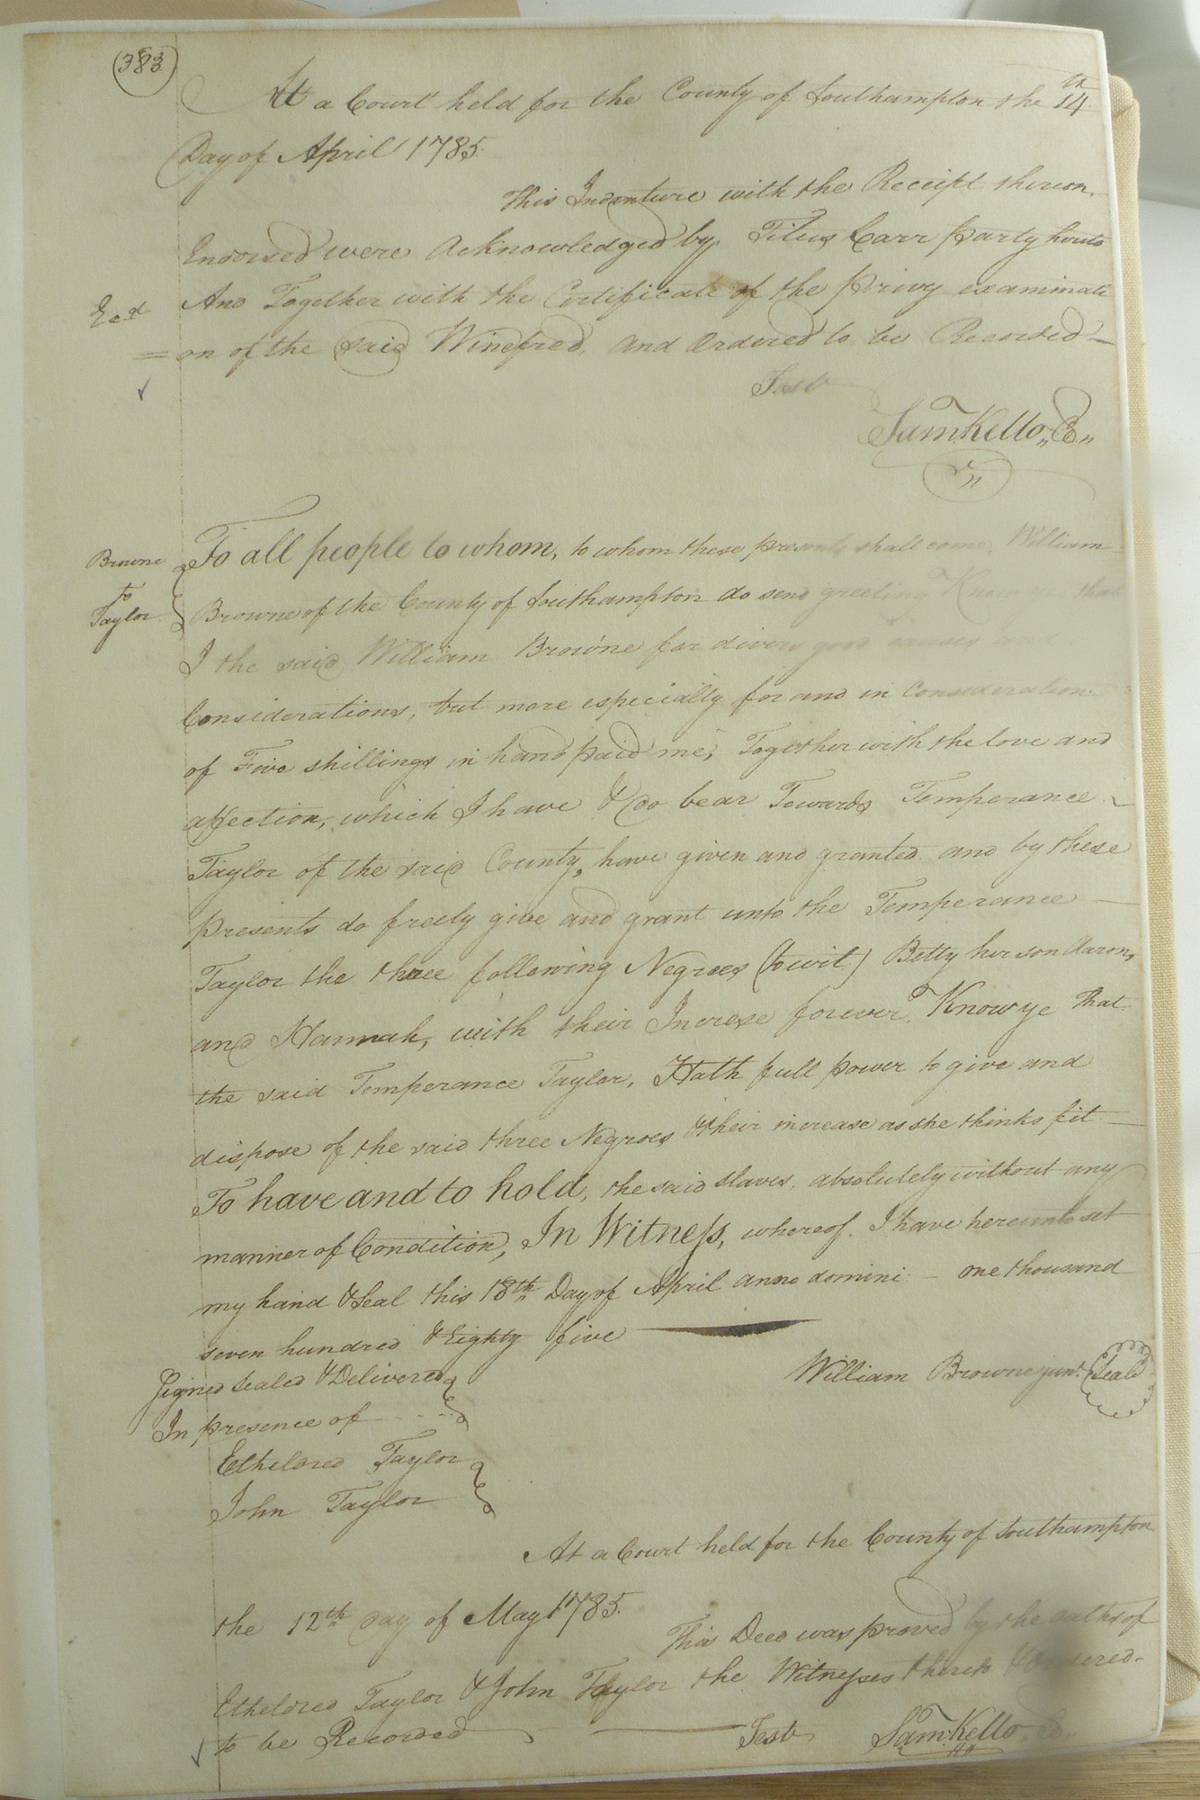 383
At a Court held for the County of Southampton the 14th
Day of April 1785
This Indenture with the Receipt thereon
Endorsed were Acknowledged by Titus Carr party hereto
Exd And Together with the Certificate of the privy examinati
=on of the said Winefred, and ordered to be Recorded
Test
Saml Kello, C
Browne
to
Taylor
To all people to whom, to whom these presents shall come William
Browne of the County of Southampton do send greeting Know that
I the said William Browne for divers good causes and
Considerations, but more especially for and in Consideration
of Five shillings in hand paid me, Together with the love and
affection, which I have & do bear Towards Temperance
Taylor of the said County, have given and granted and by these
presents do freely give and grant unto the Temperance
Taylor the three following Negroes (to wit) Betty her son Aaron,
and Hannah, with their Increse forever. Know ye That
the said Temperance Taylor, Hath full power to give and
dispose of the said three Negroes & their increase as she thinks fit
To have and to hold, the said slaves, absolutely without any
manner of Condition, In Witness, whereof I have hereunto set
my hand & Seal this 18th Day of April anno domini one thousand
seven hundred & Eighty five
William Browne junr. Seal
Signed Sealed & Delivered
In presence of
Etheldred Taylor
John Taylor
At a Court held for the County of Southampton
the 12th Day of May 1785.
This Deed was proved by the oaths of
Etheldred Taylor & John Taylor the Witnesses thereto & Ordered
to be Recorded Test Saml. Kello, C.